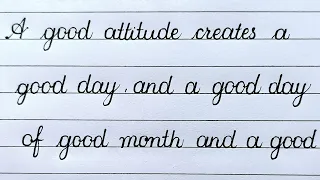 A good attitude creates a
good day, and a good day
of good month and a good